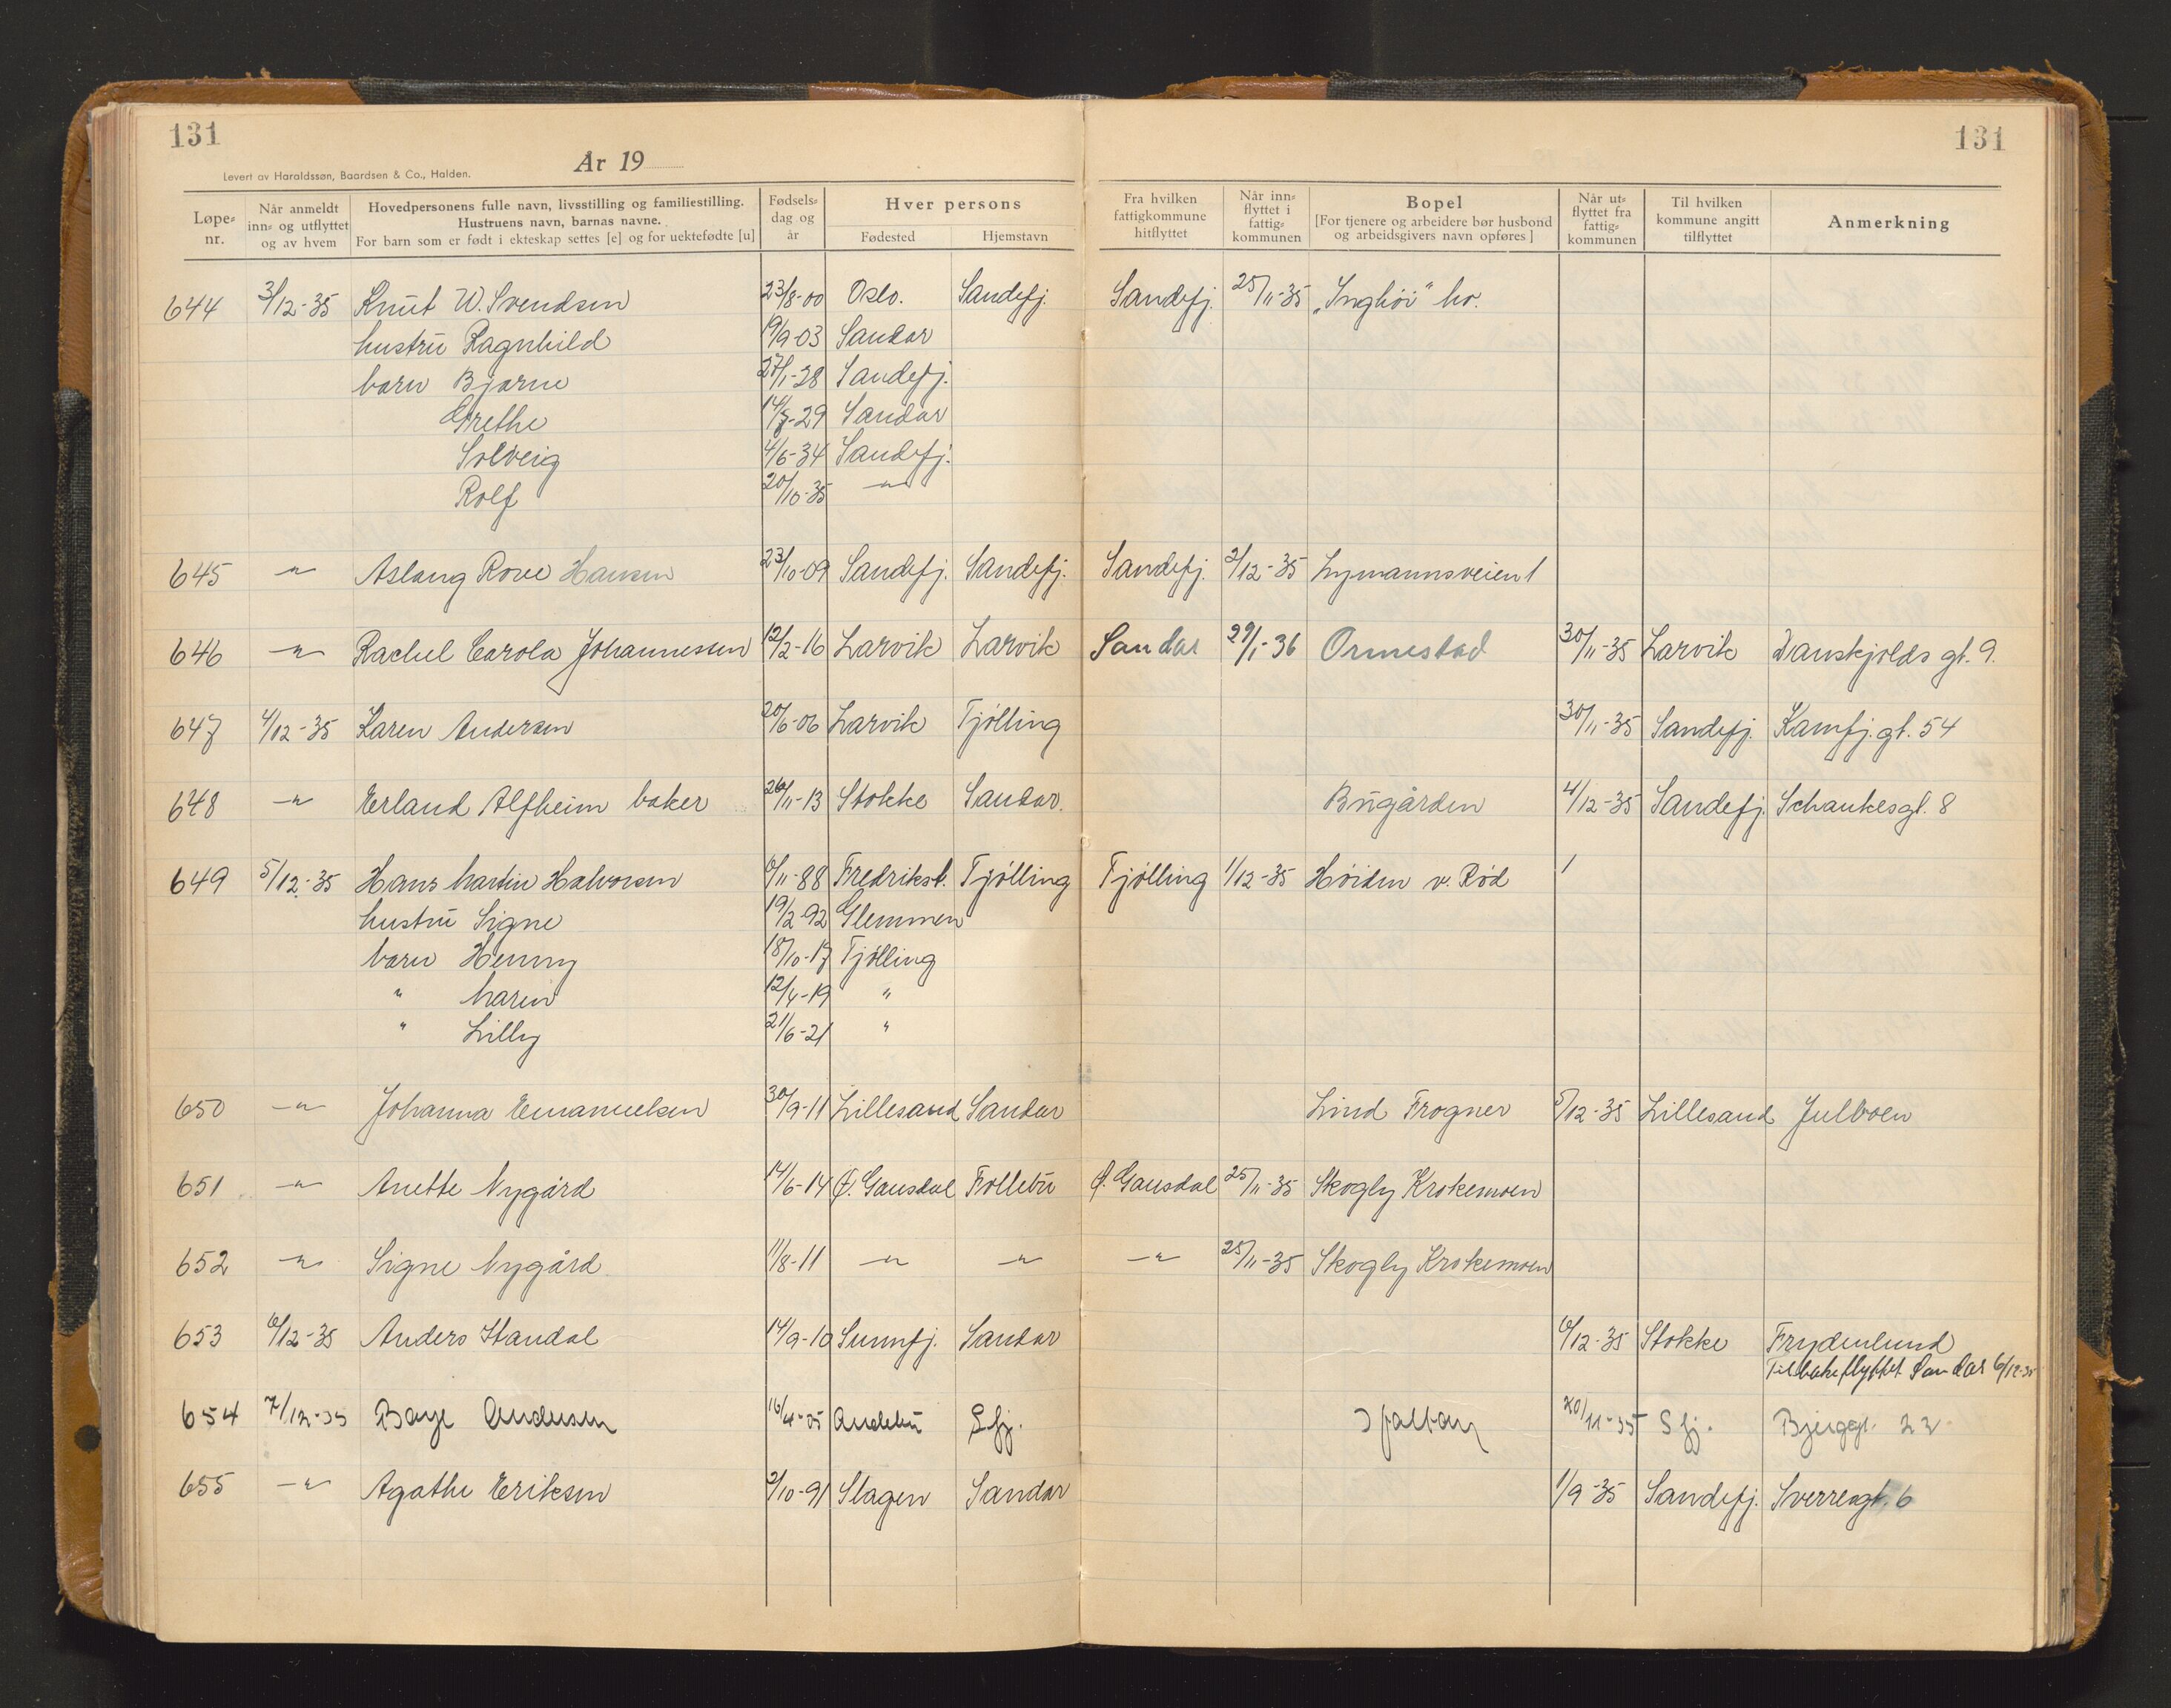 131
131
År 19
Levert av Haraldssøn, Baardsen & Co., Halden.
Løpe-nr. Når anmeldt inn- og utflyttet og av hvem Hovedpersonens fulle navn, livsstilling og familiestilling. Hustruens navn, barnas navne. For barn som er født i ekteskap settes [e] og for uektefødte [u] Fødsels-dag og år Hver persons Fødested Hjemstavn Fra hvilken fattigkommune hitflyttet Når inn-flyttet i fattig-kommunen Bopel [For tjenere og arbeidere bør husbond og arbeidsgivers navn opføres] Når ut-flyttet fra fattig-kommunen Til hvilken kommune angitt tilflyttet Anmerkning
644 3/12-35 Knut W. Svendsen 23/8-00 Oslo. Sandefj. Sandefj. 25/11-35 "Inghöi" hv.
hustru Ragnhild 19/9-03 Sandar
barn Bjarne 27/1-28 Sandefj.
Grethe 14/7-29 Sandar
Solveig 4/6-34 Sandefj.
Rolf 20/10-35 —"—
645 —"— Aslaug Rove Hansen 23/10-09 Sandefj. Sandefj. Sandefj. 2/12-35 Lymannsveien 1
646 —"— Rachel Carola Johannessen 12/2-16 Larvik Larvik Sandar 29/1-36 Ormestad 30/11-35 Larvik Danskjolds gt. 9.
647 4/12-35 Karen Andersen 20/6-06 Larvik Tjølling 30/11-35 Sandefj. Kamfj.gt. 54
648 —"— Erland Alfheim baker 26/11-13 Stokke Sandar. Bugården 4/12-35 Sandefj. Schankesgt. 8
649 5/12-35 Hans Martin Halvorsen 6/11-88 Fredrikst. Tjølling Tjølling 1/12-35 Høiden v. Rød /
hustru Signe 19/2-92 Glemmen
barn Henny 18/10-17 Tjølling
" Marin 12/4-19 "
" Lilly 21/6-21 "
650 —"— Johanna Emanuelsen 30/9-11 Lillesand Sandar Lind Frogner 5/12-35 Lillesand Julboen
651 —"— Anette Nygård 14/6-14 Ø. Gausdal Follebu Ø. Gausdal 25/11-35 Skogly Krokemoen
652 —"— Signe Nygård 11/8-11 —"— —"— —"— 25/11-35 Skogly Krokemoen
653 6/12-35 Anders Standal 14/9-10 Sunnfj. Sandar 6/12-35 Stokke Frydenlund
Tilbakeflyttet Sandar 6/12-35
654 7/12-35 Borge Andersen 16/4-05 Andebu Sfj. 20/11-35 Sfj. Bjerggt. 22
655 —"— Agathe Eriksen 2/10-91 Slagen Sandar 1/9-35 Sandefj. Sverresgt. 6